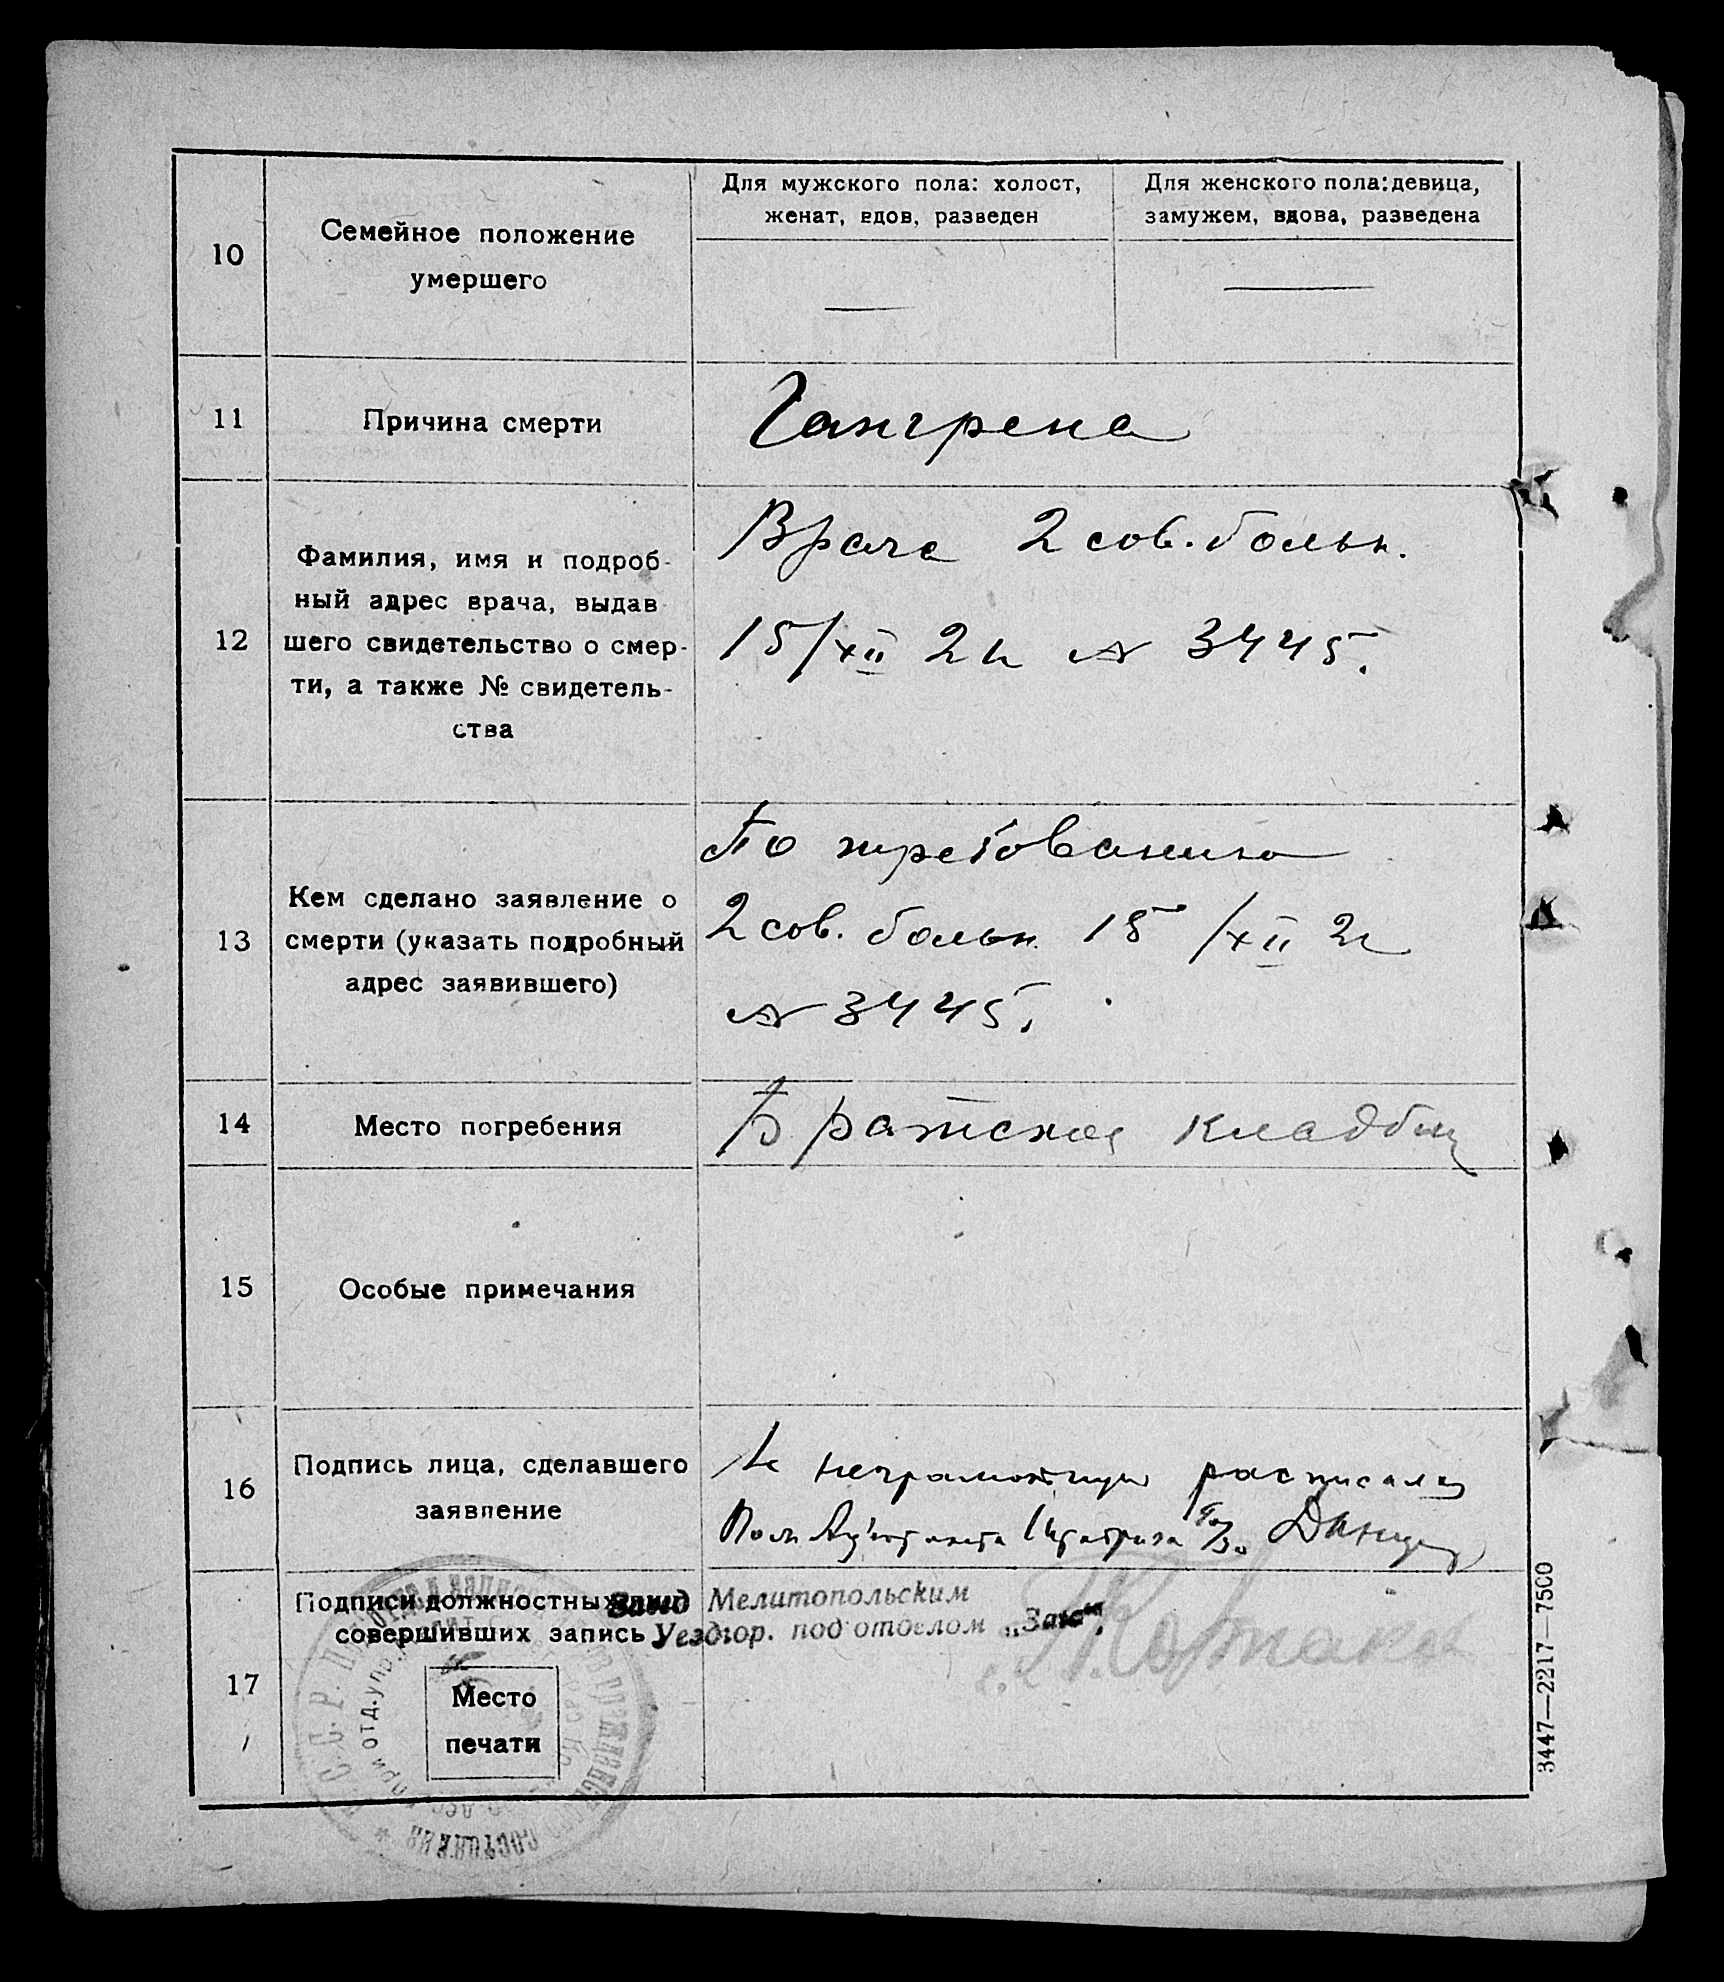 10
Семейное положение
умершего
Для мужского пола: холост,
женат, вдов, разведен
Для женского пола: девица,
замужем, вдова, разведена
11
Причина смерти
Гангрена
12
Фамилия, имя и подроб-
ный адрес врача, выдав
шего свидетельство о смер-
ти, а также № свидетель-
ства
Врача 2 сов. больн.
15/XII 21 № 3445.
13
Кем сделано заявление о
смерти (указать подробный
адрес заявившего)
По требованию
2 сов. больн. 15/XII 21
№ 3445.
14
Место погребения
Братское кладбищ
15
Особые примечания
16
Подпись лица, сделавшего
заявление
неграмотную расписался
17
Подписи должностных лиц
совершивших запись
Завед Мелитопольским
Уездгор. под'отделом „Загс“.
Место
печати
3447—2217—7500